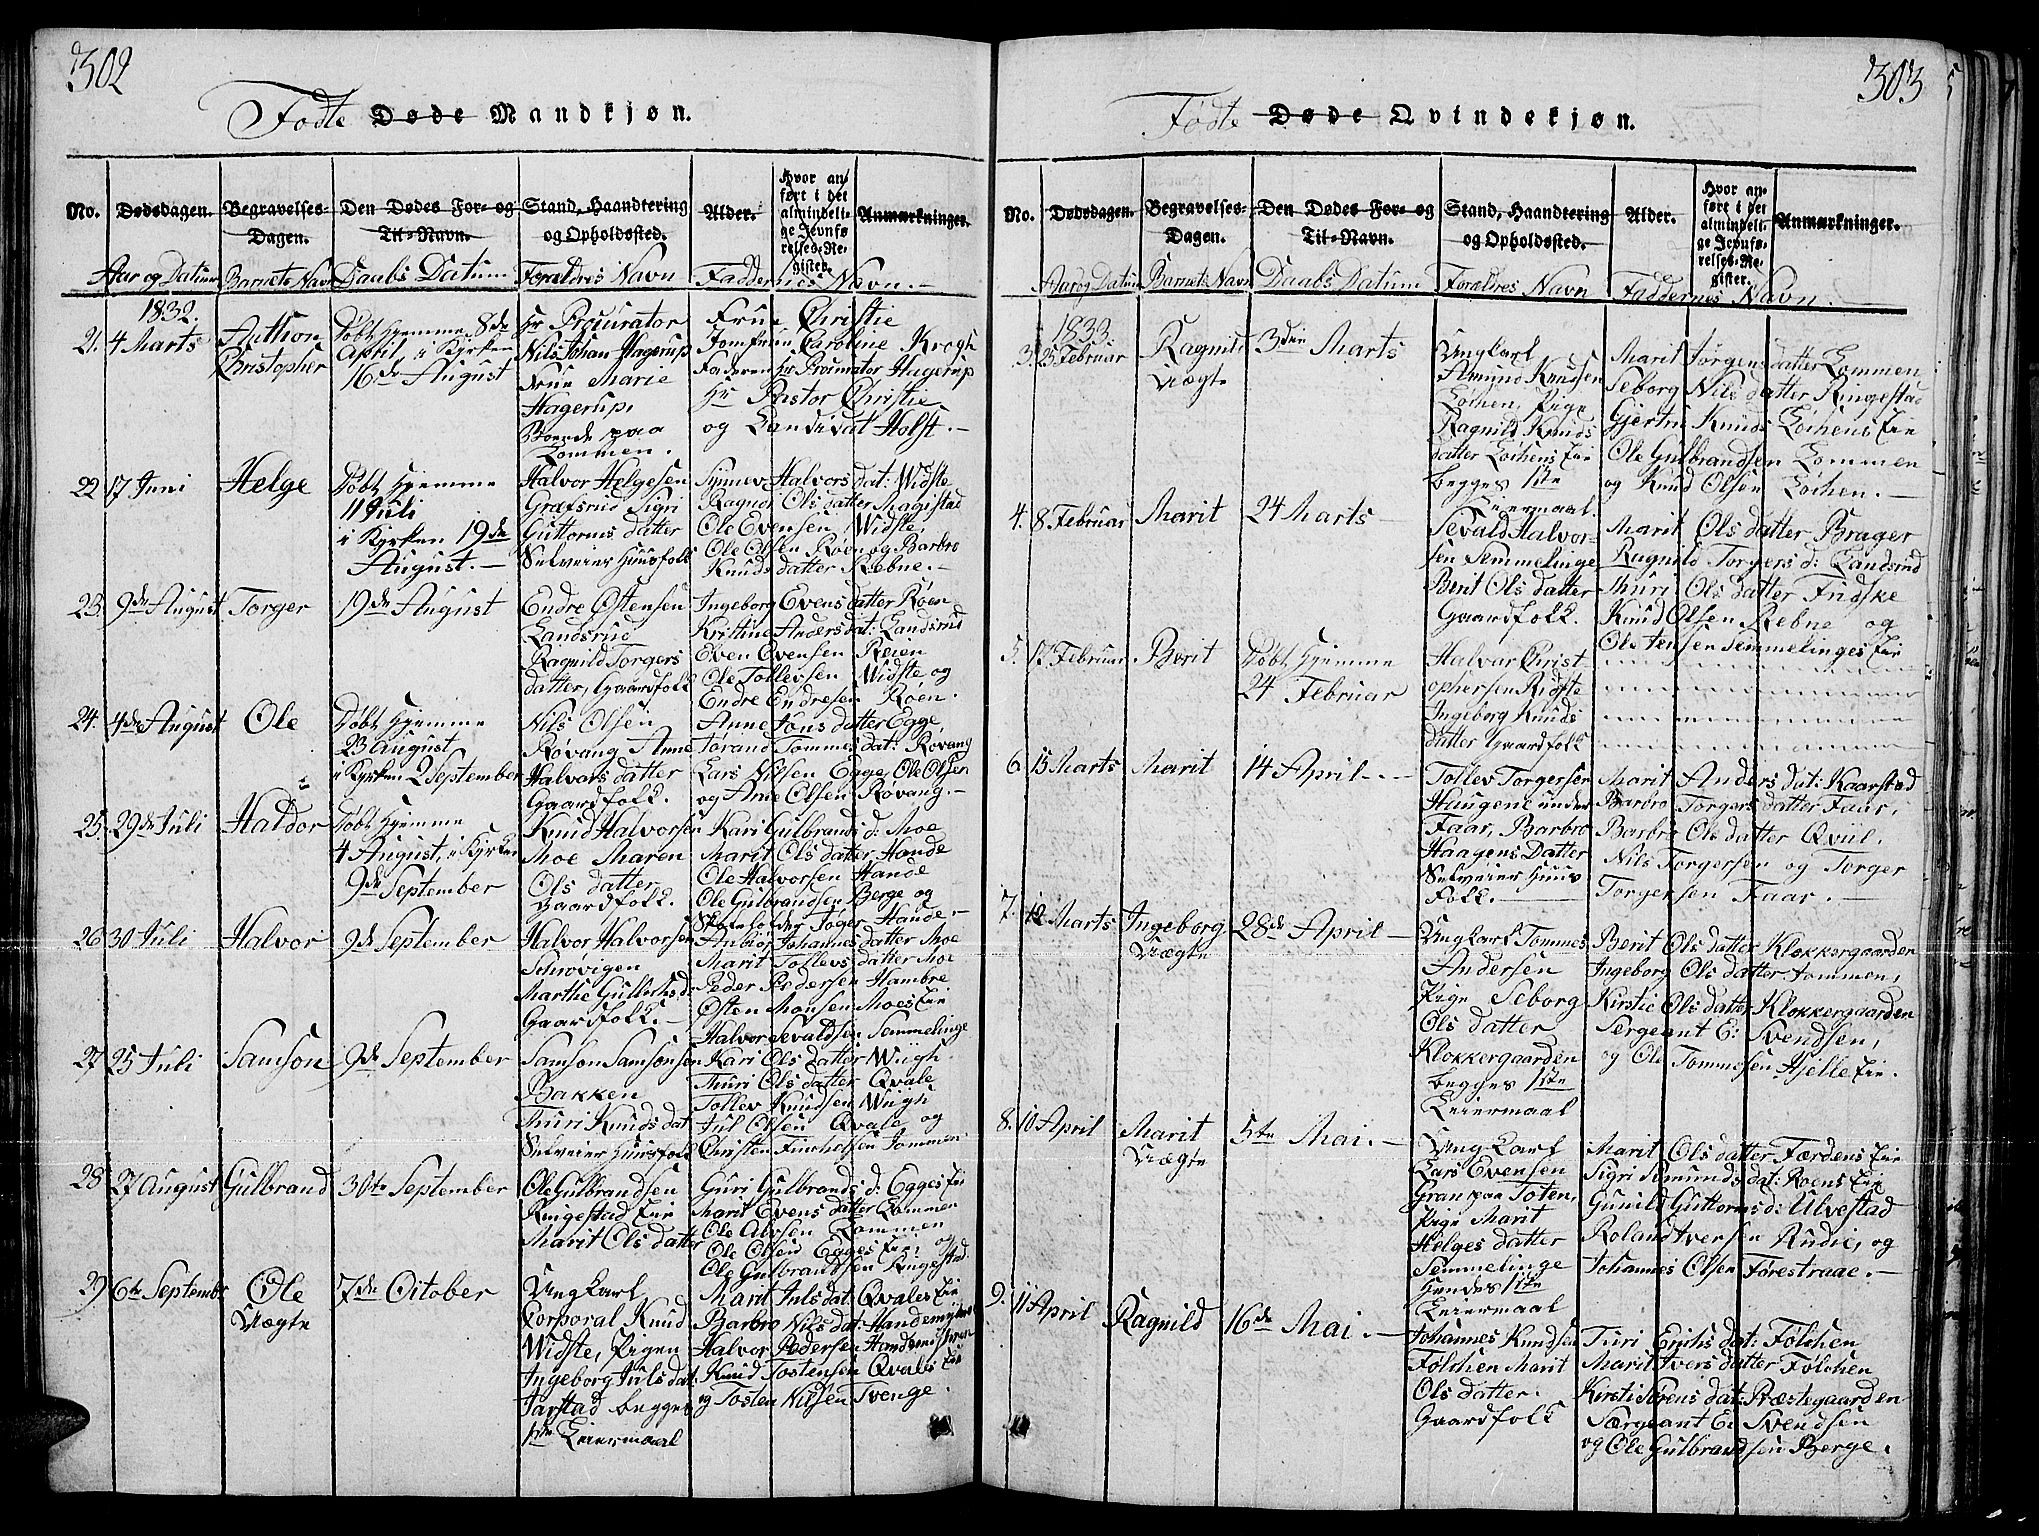 302
Fødte Døde Mandkjøn.
No. Dødsdagen. Begravelses-Dagen. Den Dødes For- og Til-Navn. Stand, Haandtering og Opholdssted. Alder. Hvor anført i det almindelige Jevnførelses-Register. Anmærkninger.
Aar og Datum Barnets Navn Daabs Datum Forældres Navn Faddernes Navn.
1832.
21. 4 Marts Anthon Christopher
Døbt hjemme 8de
April i Kyrken
16de August
Hr Procurator
Nils Johan Hagerup
Frue Marie
Hagerup,
Boende paa
Lommen.
Frue Christie
Jomfrue Caroline Krogh
Faderen Hr Procurator Hagerup
Hr Pastor Christie
og Candidat Holst.
22 17 Juni Helge
Døbt hjemme
11 Juli
i Kyrken 19de
August.
Halvor Helgesen
Grafsrud Sigri
Guttorms datter
Selveier Huusfolk
Synnev Halvors dat: Widste
Ragndi Ols datter Magistad
Ole Evensen Widste,
Ole Olsen Røen og Barbro
Knuds datter Rebne.
23 9de August Torger 19de August
Endre Østensen
Landsrud
Ragnild Torgers
datter, Gaardfolk
Ingeborg Evens datter Røen
Kristine Anders dat: Landsrud
Even Evensen Røien
Ole Tollevsen Widste og
Endre Endresen Røen.
24. 4de August Ole
Døbt hjemme
23 August
i Kyrken 2 September
Nils Olsen
Røvang Anne
Halvors datter
Gaardfolk.
Anne Jons datter Egge
Jørand Tommes dat: Røvang
Lars Nilsen Egge, Ole Olsen
og Arne Olsen Røvang.
25 29de Juli Haldor
Døbt hjemme
4 August, i Kyrken
9de September
Knud Halvorsen
Moe Maren
Ols datter
Gaardfolk.
Kari Gulbrands d: Moe
Marit Ols datter Hande
Ole Halvorsen Hande
Ole Gulbrandsen Berge og
Skoleholder Toger Hande.
26 30 Juli Halvor 9de September
Halvor Halvorsen
Schrøvigen
Marthe Gulleichs d:
Gaardfolk.
Anbiør Johannes datter Moe
Marit Tollevs datter Moe
Peder Pedersen Hambre
Østen Monsen Moes Eie
Halvor Sevaldsen Semmelinge
27 25 Juli Samson 9de September
Samson Samsonsen
Bakken
Thuri Knuds dat
Selveier Huusfolk
Kari Ols datter Wiigh
Thuri Ols datter Qvale
Tollev Knudsen Wiigh
Jul Olsen Qvale og
Christen Findholsen Jommen.
28 27 August Gulbrand 30te September
Ole Gulbrandsen
Ringestad Eie
Marit Ols datter
Guri Gulbrands d: Egges Eie
Marit Evens datter Lommen
Ole Alvsen Lommen
Ole Olsen Egges Eie: og
Ole Gulbrandsen Ringestad.
29 6te September Ole Uægte 7de October
Ungkarl
Corporal Knud
Widste, Pigen
Ingeborg Juls dat:
Jarstad begges
1ste Leiermaal
Marit Juls dat: Qvales Eie
Barbro Nils dat: Handemyhren
Halvor Pedersen Handemyhren
Knud Tostensen Qvales Eie
og Tosten Nilsen Tvenge.
303
Fødte Døde Qvindekjøn.
No. Dødsdagen. Begravelses-Dagen. Den Dødes For- og Til-Navn. Stand, Haandtering og Opholdssted. Alder. Hvor anført i det almindelige Jevnførelses-Register. Anmærkninger.
Aar og Datum Barnets Navn Daabs Datum Forældres Navn Faddernes Navn.
1833
3. 25 Februar Ragnild Uægte 3die Marts
Ungkarl
Amund Knudsen
Lochen, Pige
Ragnild Knuds
datter Lochens Eie
begges 1ste
Leiermaal.
Marit Jørgens datter Lommen
Seborg Nils datter Ringestad
Gjertru Knuds Lochens Eie
Ole Gulbrandsen Lommen
og Knud Olsen Lochen.
4. 8 Februar Marit 24 Marts
Sevald Halvor-
sen Semmelinge
Berit Ols datter
Gaardfolk.
Marit Ols datter Brager
Ragnild Torgers d: Landsrud
Thuri Ols datter Fudske
Knud Olsen Rebne og
Ole Jensen Semmelinges Eie
5. 17 Februar Berit
Døbt hjemme
24 Februar
Halvor Christ
ophersen Ridste
Ingeborg Knuds
datter Gaardfolk
6 15 Marts Marit 14 April
Tollev Torgersen
Haugene under
Faar, Barbro
Haagens Datter
Selveier Huus
Folk.
Marit Anders dat: Kaarstad
Barbro Torgers datter Faar,
Barbro Ols datter Qviil,
Nils Torgersen og Torger
Torgersen Faar.
7. 12 Marts Ingeborg Uægte 28de April
Ungkarl Tommes
Andersen
Pige Seborg
Ols datter
Klokkergaarden
begges 1ste
Leiermaal
Berit Ols datter Klokkergaarden
Ingeborg Ols datter Jommen,
Kirstie Ols datter Klokkergaarden
Sergeant E: Svendsen,
og Ole Tommesen Hjelle Eie.
8. 10 April Marit Uægte 5te Mai.
Ungkarl
Lars Evensen
Gran paa Toten,
Pige Marit
Helges datter
Semmelinge
Hendes 1ste
Leiermaal
Marit Ols datter Færdens Eie
Sigri Simunds dat: Røens Eie
Gunild Guttorms d: Ulvestad
Roland Iversen Rudie, og
Johannes Olsen Førestraae.
9. 11 April Ragnild 16de Mai.
Johannes Knudsen
Følchen Marit
Ols datter.
Gaardfolk
Turi Erichs dat: Følchen
Marit Ivers datter Følchen
Kirsti Sørens dat: Præstegaarden
Særgeant E: Svendsen
og Ole Gulbrandsen Berge.